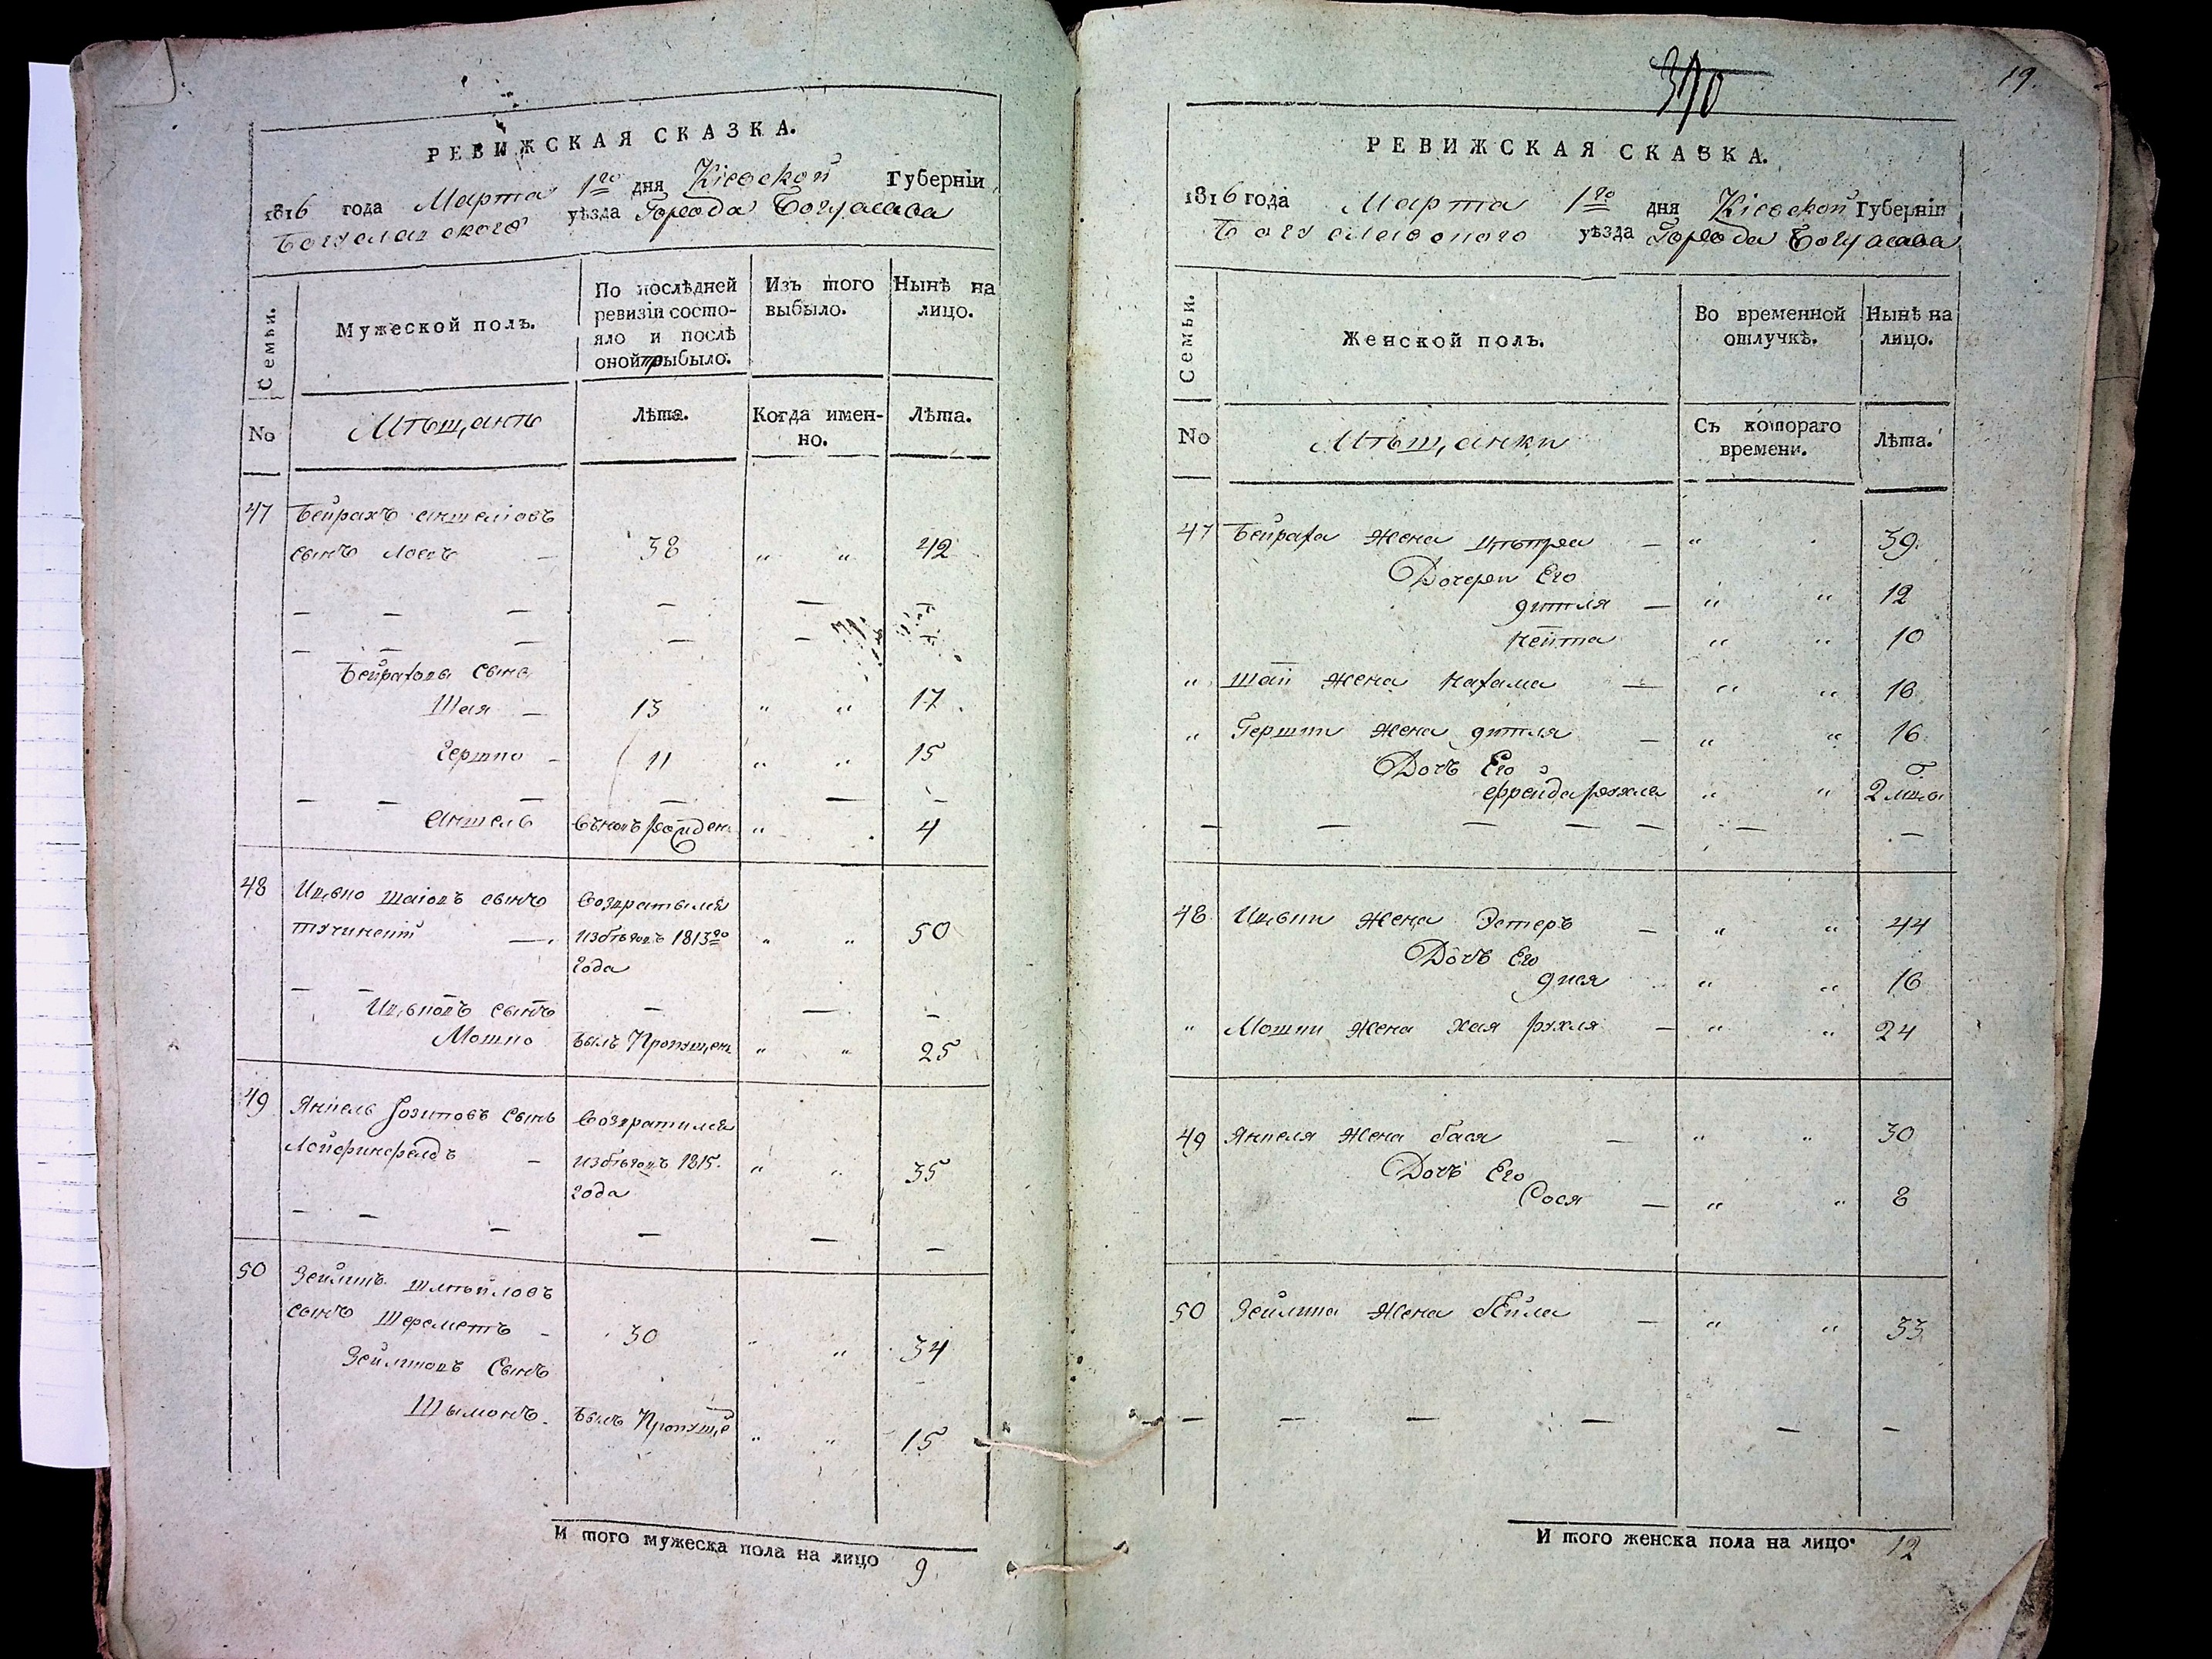 РЕВИЖСКАЯ СКАЗКА.
1816 года Марта 1го дня Кіевской Губерніи
Богуславского уѣзда Города Богуслава
Семьи.
Мужеской полъ.
По послѣдней ревизіи состояло и послѣ оной прыбыло.
Изъ того выбыло.
Нынѣ на лицо.
No
Мѣщанѣ
Лѣта.
Когда именно.
Лѣта.
47 Бейрахъ аншеліовъ
сынъ 38 " " 42
— — — — — —
— — — — — —
Бейраховы сынъ
Шая — 13 " " 17
Гершко — 11 " " 15
— — — — — —
аншель рожден. " 4
48 Ицько шаіовъ сынъ возвратылся
— избѣговъ 1813го " " 50
года
— — — — —
Ицьковъ сынъ
Мошко былъ Пропущен " " 25
49 Янкель сынъ возвратился
— избѣговъ 1815. " " 35
года
— — — — — —
50 Зейликъ шлѣйловъ
сынъ Шереметъ - 30 " " 34
Зейликовъ Сынъ
Шымонъ. былъ Пропуще " " 15
И того мужеска пола на лицо 9
370
19.
РЕВИЖСКАЯ СКАЗКА.
1816 года Марта 1го дня Кіевской Губерніи
Богуславского уѣзда Города Богуслава
Семьи.
Женской полъ.
Во временной отлучкѣ.
Нынѣ на лицо.
No
Мѣщанки
Съ котораго времени.
Лѣта.
47 Бейраха жена — " 39.
Дочери Его
гитля — " " 12
кейта " " 10
" Шаи жена нахама — " " 16
" Гершки жена гитля — " " 16
Дочь Его
ефрейда рухля " " 2
— — — — — — —
48 Ицьки жена Эстеръ — " " 44
Дочь Его
" " 16
" Мошки жена хая рухля — " " 24
49 Янкеля жена бася — " " 30
Дочь Его
Сося — " " 8
50 Зейлика жена бейла — " " 33
— — — — — —
И того женска пола на лицо 12